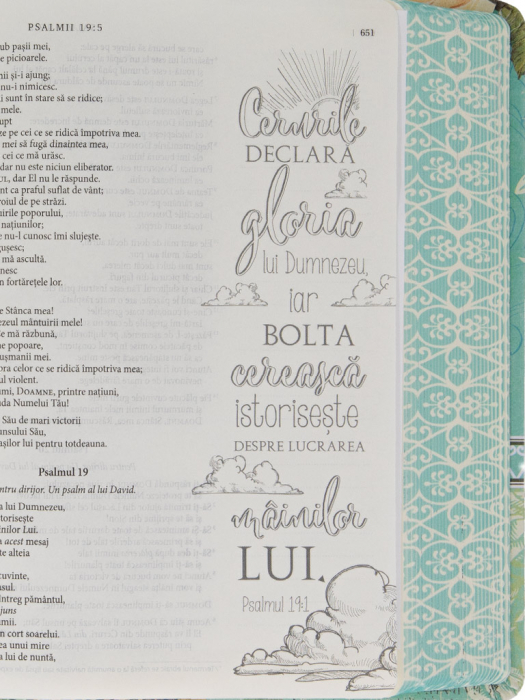 PSALMII 19:5
651
ub pașii mei,
e picioarele.
nii și-i ajung;
nu-i nimicesc.
i sunt în stare să se ridice;
mele.
upt
ze pe cei ce se ridică împotriva mea.
mei să fugă dinaintea mea,
cei ce mă urăsc.
dar nu este niciun eliberator.
UL, dar El nu le răspunde.
nt ca praful suflat de vânt;
roiul de pe străzi.
nirile poporului,
națiunilor;
e nu-l cunosc îmi slujește.
ușesc;
mă ascultă.
nesc
n fortărețele lor.
e Stânca mea!
ezeul mântuirii mele!
e mă răzbună,
ne popoare,
ușmanii mei.
pra celor ce se ridică împotriva mea;
ul violent.
ami, DOAMNE, printre națiuni,
nda Numelui Tău!
Său de mari victorii
ansului Său,
așilor lui pentru totdeauna.
Psalmul 19
ntru dirijor. Un psalm al lui David.
a lui Dumnezeu,
torisește
inilor Lui.
a acest mesaj
te alteia
cuvinte,
asul.
întreg pământul,
juns
umii.
n cort soarelui.
ea unui mire
a lui de nuntă,
Cerurile
DECLARĂ
gloria
lui Dumnezeu,
iar
BOLTA
cerească
istorisește
DESPRE LUCRAREA
mâinilor
LUI.
Psalmul 19:1